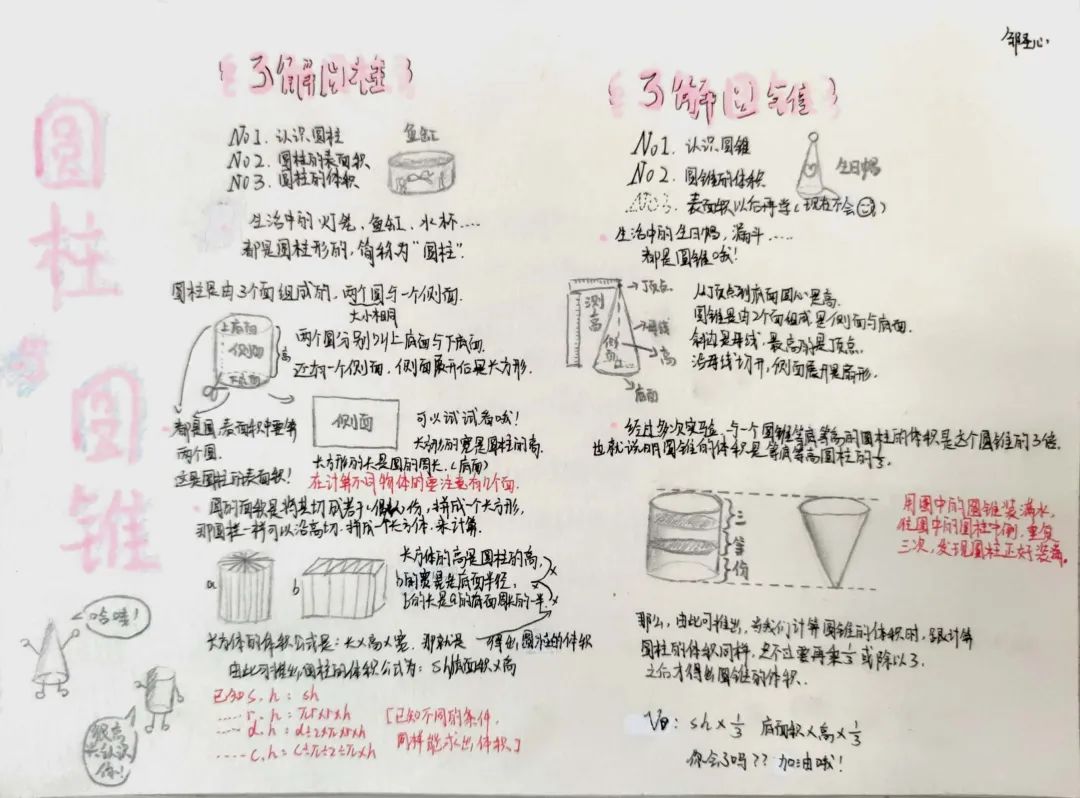 圆柱
圆锥
了解圆柱
No1. 认识圆柱
No2. 圆柱的表面积
No3. 圆柱的体积
鱼缸
生活中的灯笼、鱼缸、水杯....
都是圆柱形的,简称为"圆柱".
圆柱是由3个面组成的,两个圆与一个侧面.
大小相同
上底面
侧面
下底面
高
两个圆分别叫上底面与下底面.
还有一个侧面,侧面展开后是长方形.
都是圆,表面积中要算
两个圆.
这是圆柱的表面积!
侧面
可以试试看哦!
长方形的宽是圆柱的高.
长方形的长是圆的周长.(底面)
在计算不同物体时要注意有几个面.
圆的面积是将其切成若干份,拼成一个长方形,
那圆柱一样可以沿高切.拼成一个长方体.来计算.
a
b
长方体的高是圆柱的高,
b的宽是底面半径,
b的长是a的底面周长的一半
长方体的体积公式是:长×高×宽. 那就是 可得出圆柱的体积
由此可推出圆柱的体积公式为: Sh底面积×高
已知s.h: sh
..... r.h: πr×r×h
..... d.h: d÷2×πr×h
..... c.h: c÷π÷2÷π×h
[已知不同的条件,
同样能求出体积.]
哈喽!
很高
兴认识
你!
了解圆锥
No1. 认识圆锥
No2. 圆锥的体积
No3. 表面积以后再学(现在不会)
生日帽
生活中的生日帽,漏斗.....
都是圆锥哦!
测高
顶点
母线
高
侧面
底面
从顶点到底面圆心是高.
圆锥是由2个面组成是侧面与底面.
斜边是母线.最高的是顶点.
沿母线切开,侧面展开是扇形.
经过多次实验,与一个圆锥等底等高的圆柱的体积是这个圆锥的3倍.
也就说明圆锥的体积是等底等高圆柱的1/3.
三等份
用图中的圆锥装满水,
往图中的圆柱中倒,重复
三次,发现圆柱正好装满。
那么,由此可推出,当我们计算圆锥的体积时,跟计算
圆柱的体积同样,只不过要再乘1/3或除以3.
之后才得出圆锥的体积.
V: sh×1/3 底面积×高×1/3
你会了吗?? 加油哦!